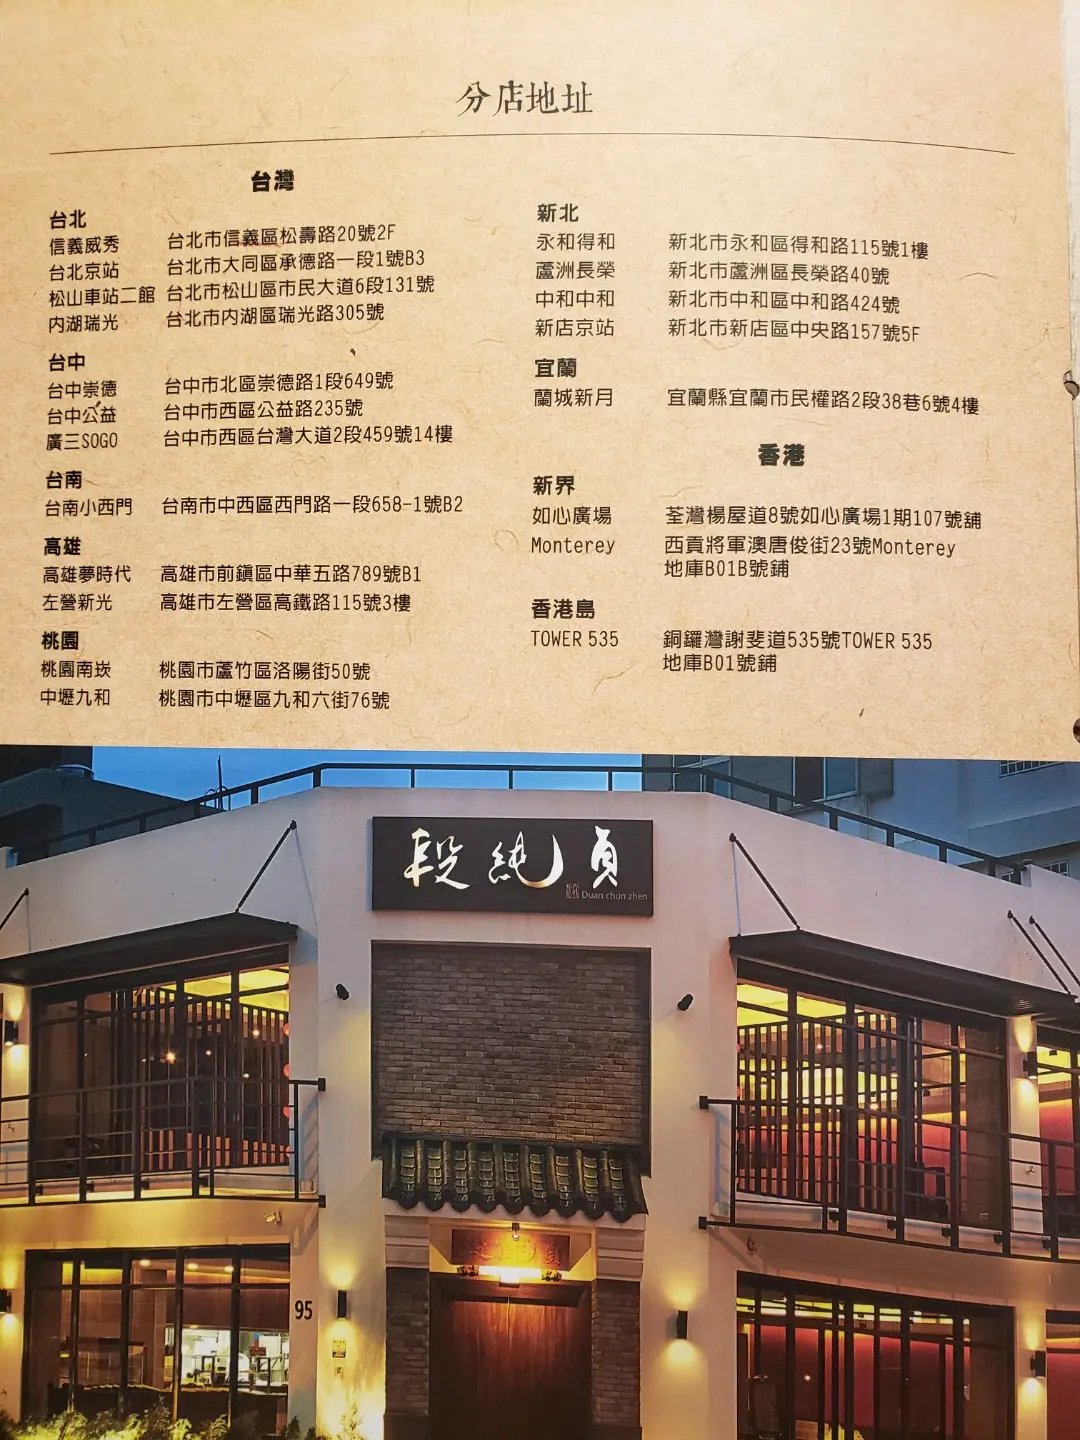 分店地址
台灣
台北
信義威秀 台北市信義區松壽路20號2F
台北京站 台北市大同區承德路一段1號B3
松山車站二館 台北市松山區市民大道6段131號
內湖瑞光 台北市內湖區瑞光路305號
台中
台中崇德 台中市北區崇德路1段649號
台中公益 台中市西區公益路235號
廣三SOGO 台中市西區台灣大道2段459號14樓
台南
台南小西門 台南市中西區西門路一段658-1號B2
高雄
高雄夢時代 高雄市前鎮區中華五路789號B1
左營新光 高雄市左營區高鐵路115號3樓
桃園
桃園南崁 桃園市蘆竹區洛陽街50號
中壢九和 桃園市中壢區九和六街76號
新北
永和得和 新北市永和區得和路115號1樓
蘆洲長榮 新北市蘆洲區長榮路40號
中和中和 新北市中和區中和路424號
新店京站 新北市新店區中央路157號5F
宜蘭
蘭城新月 宜蘭縣宜蘭市民權路2段38巷6號4樓
香港
新界
如心廣場 荃灣楊屋道8號如心廣場1期107號舖
Monterey 西貢將軍澳唐俊街23號Monterey
地庫B01B號鋪
香港島
TOWER 535 銅鑼灣謝斐道535號TOWER 535
地庫B01號鋪
段純貞
Duan chun zhen
95